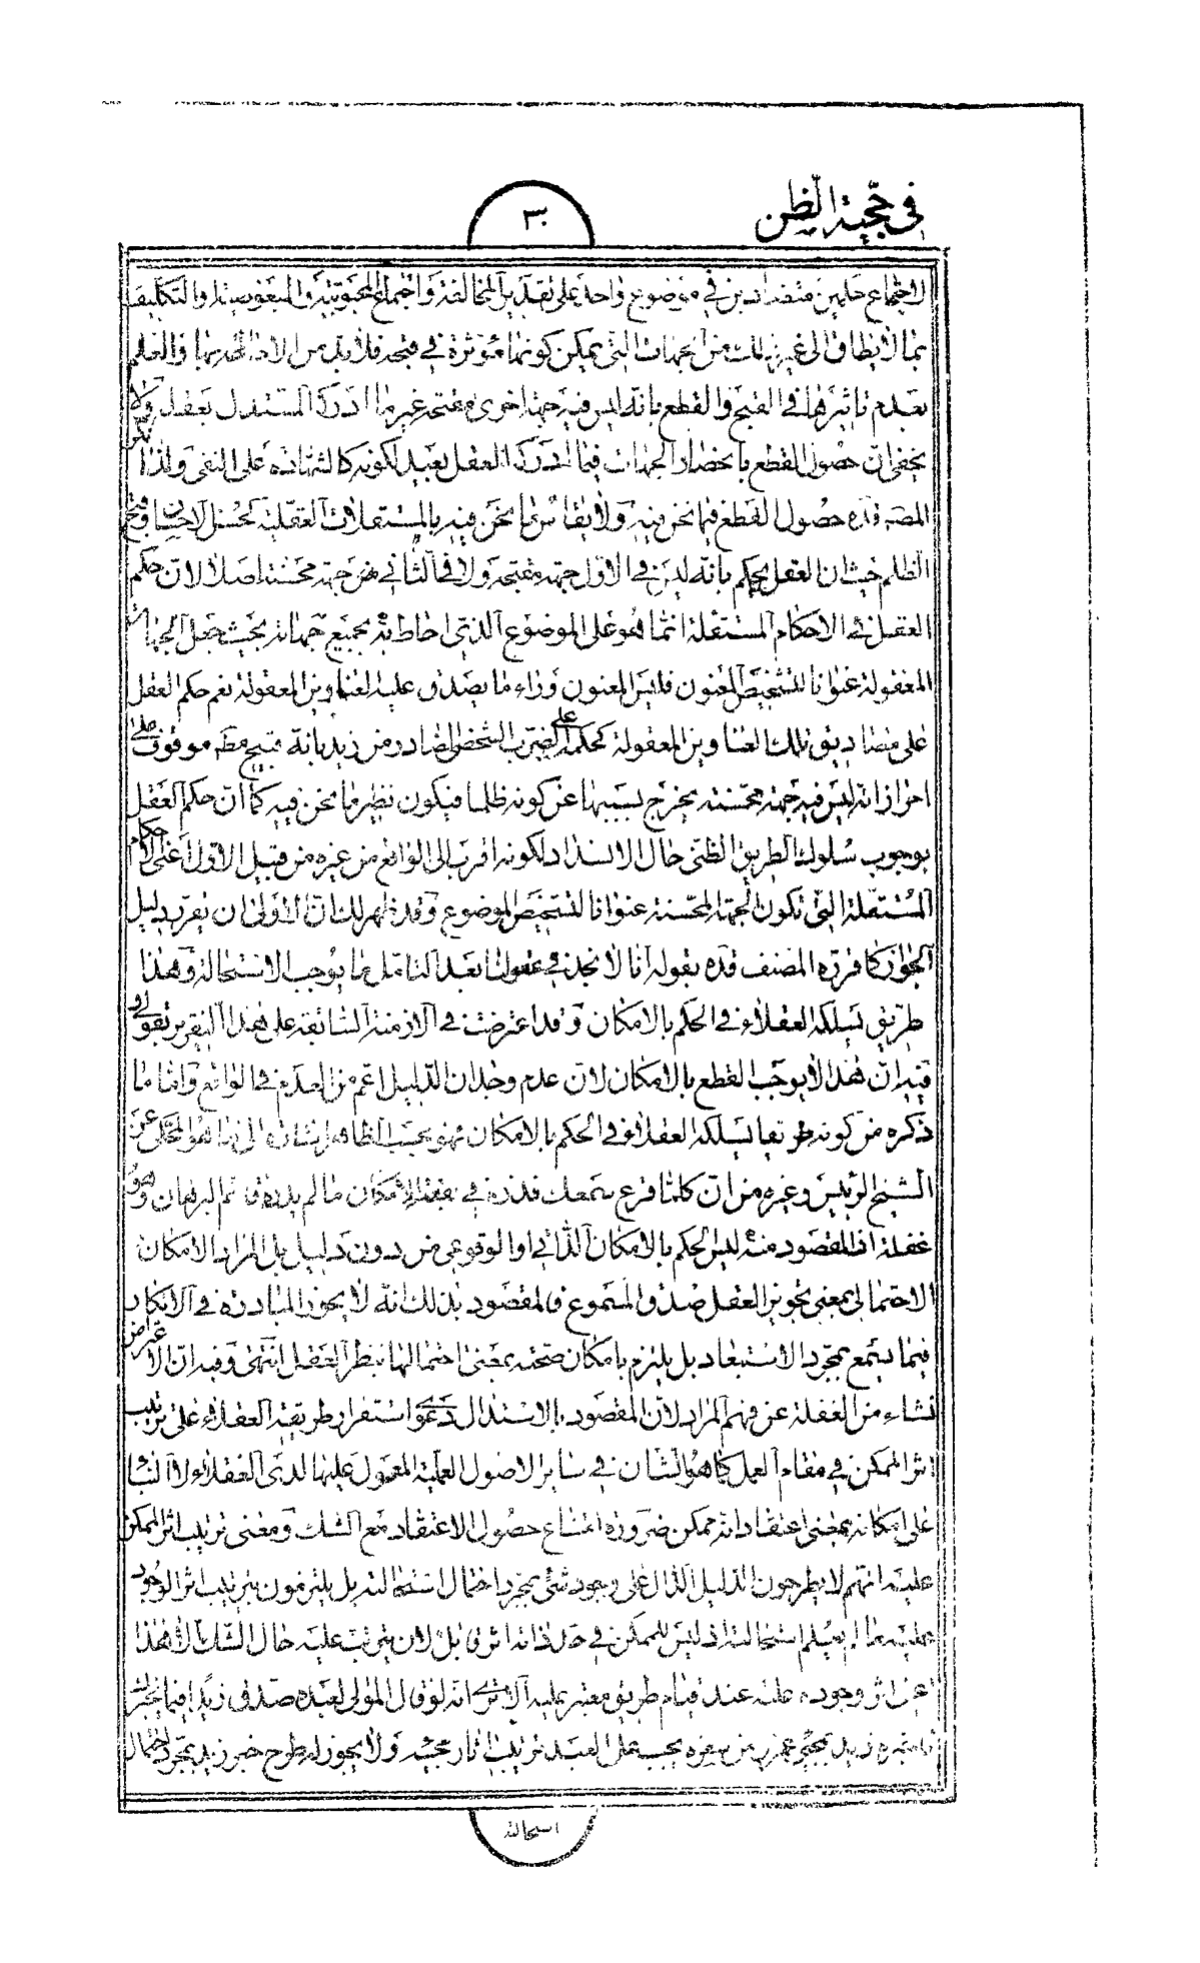 في حجية الظن
٣٠
لاجتماع حكمين متضادين في موضوع واحد على تقدير المخالفة واجتماع المحبوبية والمبغوضية والتكليف
بما لا يطاق الى غير ذلك من الجهات التي يمكن كونها مؤثرة في قبحه فلا بد من الاحاطة بها والعلم
بعدم تاثيرها في القبح والقطع بانه ليس فيه جهة اخرى مقبحة غير ما ادركه المستدل بعقله ولا
يخفى ان حصول القطع بانحصار الجهات فيما ادركه العقل بعيد لكونه كالشهادة على النفي ولذا انكر
المصنف قده حصول القطع فيما نحن فيه ولا يقاس ما نحن فيه بالمستقلات العقلية كحسن الاحسان وقبح
الظلم حيث ان العقل يحكم بانه ليس في الاول جهة مقبحة ولا في الثاني جهة محسنة اصلا لان حكم
العقل في الاحكام المستقلة انما هو على الموضوع الذي احاط به بجميع جهاته بحيث جعل الجهات
المعقولة عنوانا لتشخيص المعنون فليس المعنون وراء ما يصدق عليه العناوين المعقولة نعم حكم العقل
على مصاديق تلك العناوين المعقولة كحكمه على الضرب الشخصي الصادر من زيد بانه قبيح مطلقا موقوف على
احراز انه ليس فيه جهة محسنة يخرج بسببها عن كونه ظلما فيكون نظير ما نحن فيه كما ان حكم العقل
بوجوب سلوك الطريق الظني حال الانسداد لكونه اقرب الى الواقع من غيره من قبيل الاول اعني الاحكام
المستقلة التي تكون الجهة المحسنة عنوانا لتشخيص الموضوع وقد ظهر لك ان الاولى ان يقرب دليل
الجواز كما قرره المصنف قده بقوله انا لا نجد في عقولنا بعد التامل ما يوجب الاستحالة وهذا
طريق يسلكه العقلاء في الحكم بالامكان وقد اعترضت في الازمنة السابقة على هذا التقرير بقولي و
فيه ان هذا لا يوجب القطع بالامكان لان عدم وجدان الدليل اعم من العدم في الواقع واما ما
ذكره من كونه طريقا يسلكه العقلاء في الحكم بالامكان فهو بحسب الظاهر اشارة الى ما هو المحكي عن
الشيخ الرئيس وغيره من ان كلما قرع سمعك فذره في بقعة الامكان ما لم يذده قائم البرهان وهو
غفلة اذ المقصود منه ليس الحكم بالامكان الذاتي او الوقوعي من دون دليل بل المراد الامكان
الاحتمالي بمعنى تجويز العقل صدق المسموع فالمقصود بذلك انه لا يجوز المبادرة في الانكار
فيما يسمع بمجرد الاستبعاد بل يلتزم بامكان صحته بمعنى احتمالها بنظر العقل انتهى وفيه ان الاعتراض
نشاء من الغفلة عن فهم المراد لان المقصود بالاستدلال دعوى استقرار طريقة العقلاء على ترتيب
اثر الممكن في مقام العمل كما هو الشان في سائر الاصول العملية المعمول عليها لدى العقلاء لا البناء
على امكانه بمعنى اعتقاد انه ممكن ضرورة امتناع حصول الاعتقاد مع الشك ومعنى ترتيب اثر الممكن
عليه انهم لا يطرحون الدليل الدال على وجود شئ بمجرد احتمال استحالته بل يلتزمون بترتيب اثر الوجود
عليه ما لم يعلم استحالته اذ ليس للممكن في حد ذاته اثر قابل لان يترتب عليه حال الشك الا هذا
اعني اثر وجوده عليه عند قيام طريق معتبر عليه الا ترى انه لو قال المولى لعبده صدق زيدا فيما يخبرك
فاخبره زيد بمجئ عمرو من سفره يجب على العبد ترتيب اثار مجيئه ولا يجوز له طرح خبر زيد بمجرد احتمال
استحالته